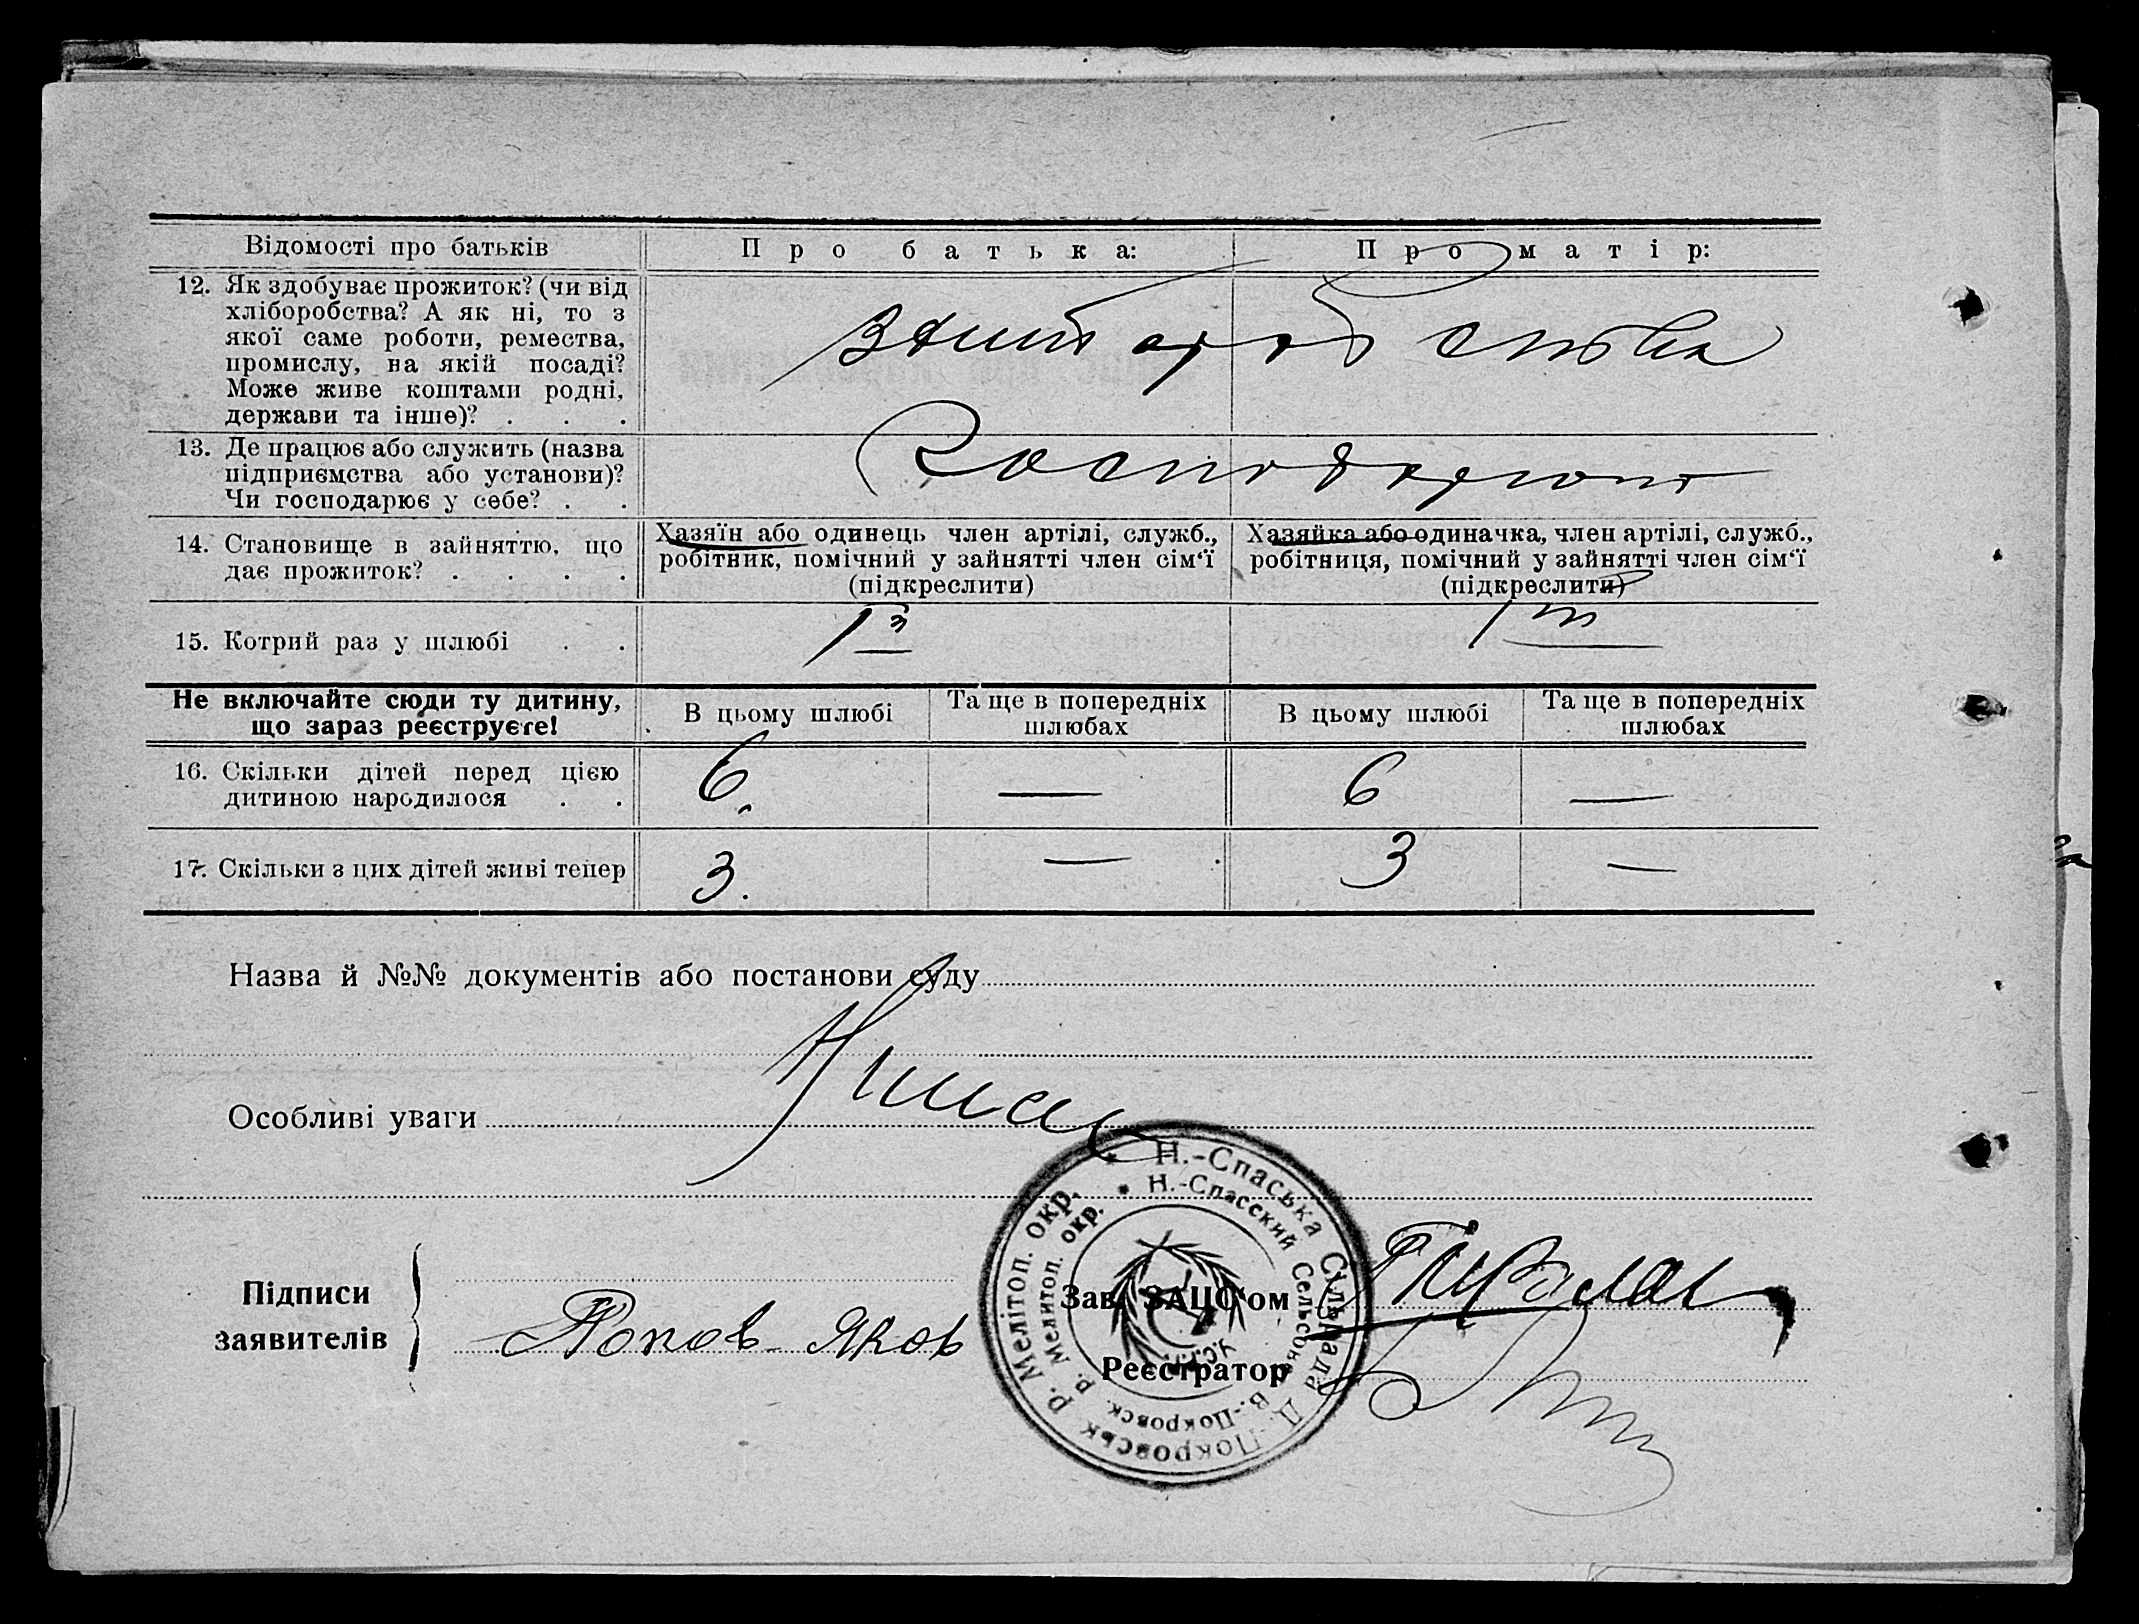 Відомості про батьків
Про батька:
Про матір:
12. Як здобуває прожиток? (чи від
хліборобства? А як ні, то з
якої саме роботи, ремества,
промислу, на якій посаді?
Може живе коштами родні,
держави та інше)? . . .
13. Де працює або служить (назва
підприємства або установи)?
Чи господарює у себе? . .
14. Становище в зайняттю, що
дає прожиток? . . . .
Хазяїн або одинець член артілі, служб.,
робітник, помічний у зайнятті член сім‘ї
(підкреслити)
Хазяйка або одиначка, член артілі, служб.,
робітниця, помічний у зайнятті член сім‘ї
(підкреслити)
15. Котрий раз у шлюбі . .
1й
1й
Не включайте сюди ту дитину,
що зараз реєструєте!
В цьому шлюбі
Та ще в попередніх
шлюбах
В цьому шлюбі
Та ще в попередніх
шлюбах
16. Скільки дітей перед цією
дитиною народилося . .
6. — 6 —
17. Скільки з цих дітей живі тепер
3. — 3 —
Назва й №№ документів або постанови суду
Особливі уваги
Н.-Спаська Сільрада Д.-Покровськ р. Мелітоп. окр.
Н.-Спасский Сельсовет В.-Покровск. р. Мелитоп. окр.
Підписи
заявителів
Попов Яков
Зав. ЗАЦС‘ом
Реєстратор